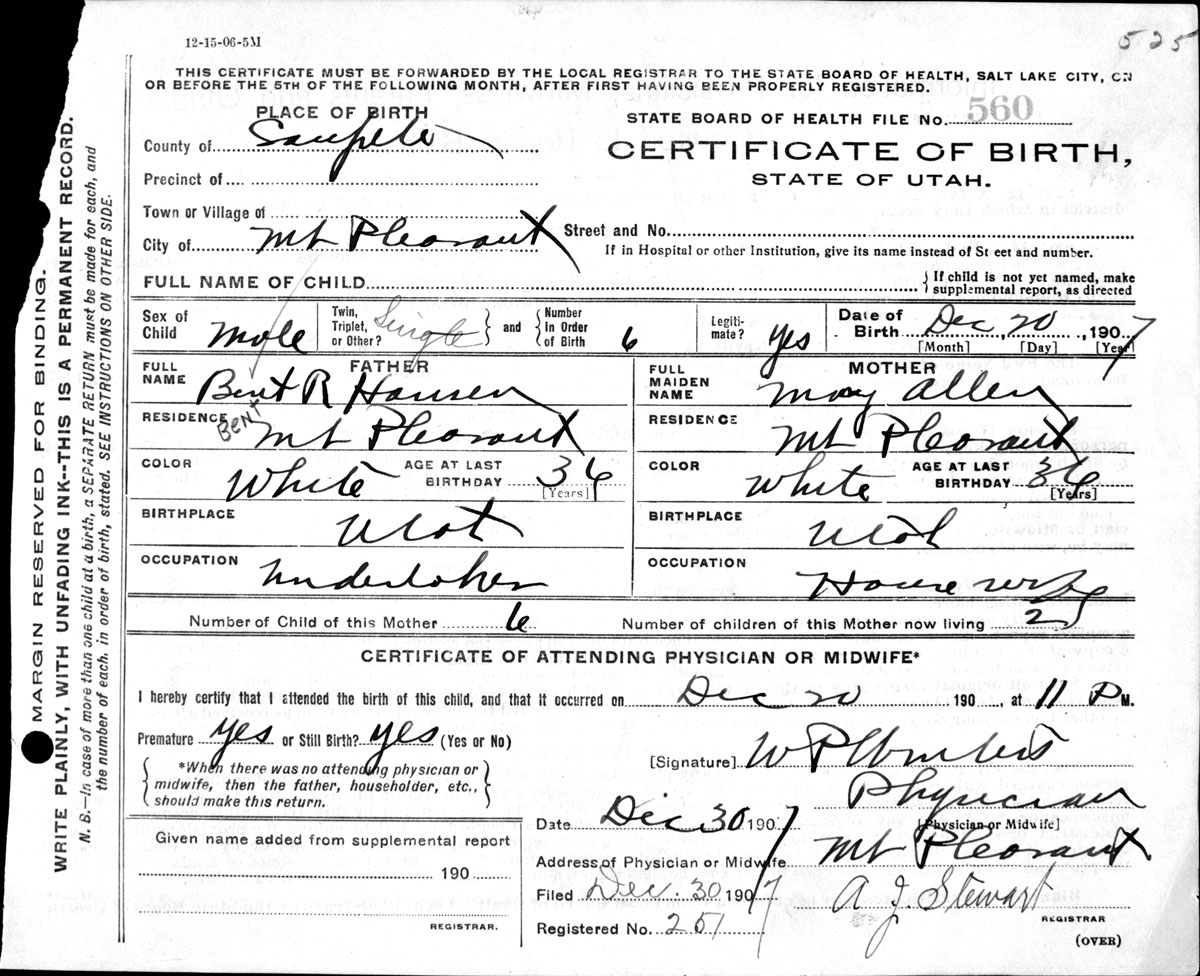 12-15-06-5M
525
THIS CERTIFICATE MUST BE FORWARDED BY THE LOCAL REGISTRAR TO THE STATE BOARD OF HEALTH, SALT LAKE CITY, ON
OR BEFORE THE 5TH OF THE FOLLOWING MONTH, AFTER FIRST HAVING BEEN PROPERLY REGISTERED.
MARGIN RESERVED FOR BINDING.
WRITE PLAINLY, WITH UNFADING INK--THIS IS A PERMANENT RECORD.
N. B.—In case of more than one child at a birth, a SEPARATE RETURN must be made for each, and
the number of each, in order of birth, stated. SEE INSTRUCTIONS ON OTHER SIDE.
PLACE OF BIRTH
County of Sanpete
Precinct of
Town or Village of
City of Mt Pleasant
STATE BOARD OF HEALTH FILE No. 560
CERTIFICATE OF BIRTH,
STATE OF UTAH.
Street and No.
If in Hospital or other Institution, give its name instead of St eet and number.
FULL NAME OF CHILD
{ If child is not yet named, make
supplemental report, as directed
Sex of Child Male
Twin, Triplet, or Other? Single } and { Number in Order of Birth 6
Legiti-mate? Yes
Date of Birth Dec 20, 1907
[Month] [Day] [Year]
FATHER
FULL NAME Bent R Hansen
Bent
RESIDENCE Mt Pleasant
COLOR White AGE AT LAST BIRTHDAY 36
[Years]
BIRTHPLACE Utah
OCCUPATION Undertaker
MOTHER
FULL MAIDEN NAME Mary Allen
RESIDENCE Mt Pleasant
COLOR White AGE AT LAST BIRTHDAY 36
[Years]
BIRTHPLACE Utah
OCCUPATION House wife
Number of Child of this Mother 6 Number of children of this Mother now living 2
CERTIFICATE OF ATTENDING PHYSICIAN OR MIDWIFE*
I hereby certify that I attended the birth of this child, and that it occurred on Dec 20 190 , at 11 P M.
Premature yes or Still Birth? yes (Yes or No)
{ *When there was no attending physician or
midwife, then the father, householder, etc.,
should make this return. }
[Signature] W P
Physician
[Physician or Midwife]
Date Dec 30 1907
Address of Physician or Midwife Mt Pleasant
Filed Dec. 30 1907 A J Stewart
REGISTRAR
Registered No. 251
(OVER)
Given name added from supplemental report
190
REGISTRAR.